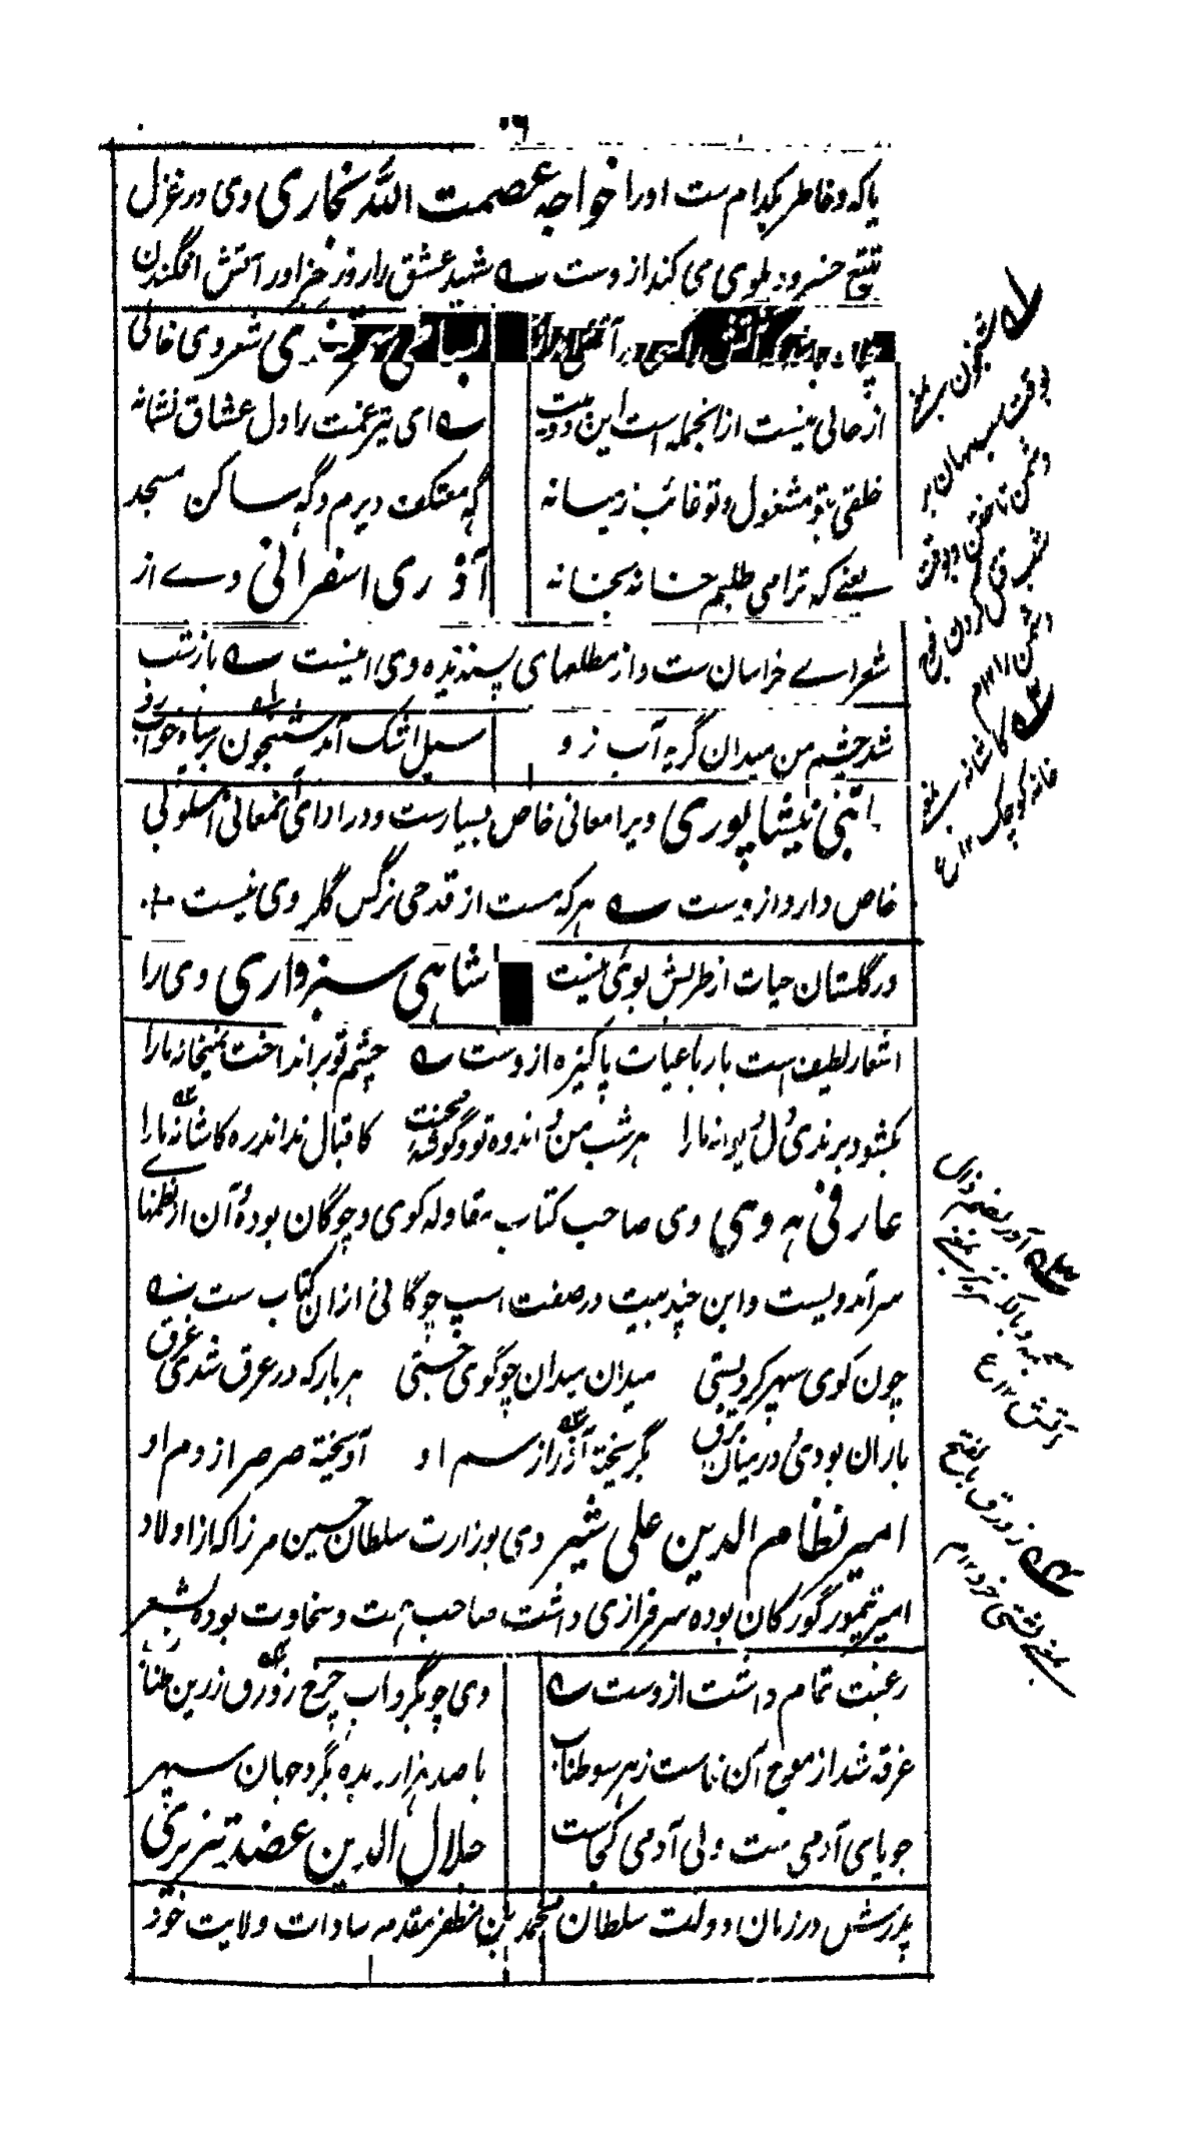 ۰۶
یا که و خاطر بکدام ست او را خواجه عصمت الله بخاری وی در غزل
تتبع خسرو دهلوی می کند از وست ـه شهید عشق را روز جزا در آتش افگندن
در آتش ری شعر وی خالی
از حالی نیست از انجمله است این دو بیت ـه ای تیر غمت را دل عشاق نشانه
خلقی بتو مشغول و تو غائب ز میانه گه معتکف دیرم و گه ساکن مسجد
یعنے که ترا می طلبم خانه بخانه آذری اسفرائنی وے از
شعراے خراسان ست و از مطلعهای پسندیده وی اینست ـه باز شب
شد چشم من میدان گریه آب زو سیل اشک آمد شبیخون بر سپاه خواب زد
نیشاپوری ویرا معانی خاص بسیارست و در ادای آنمعانی اسلوبی
خاص دارد از وست ـه هر که مست از قدحی نرگس گلروی نیست
در گلستان حیات از طربش بوئی نیست شاهی سبزواری وی را
اشعار لطیف است با رباعیات پاکیزه از وست ـه چشم تو بر انداخت بمیخانه ما را
بکشود برندی دل دیوانه ما را هر شب من و اندوه تو و گوشه محنت کاقبال نداند ره کاشانه ما را
عارفی هروی وی صاحب کتاب مقاوله گوی و چوگان بوده و آن از نظمهای
سرآمد ویست و این چند بیت در صفت اسپ چوگانی از ان کتاب ست ـه
چون گوی سپهر گرد بستی میدان میدان چو گوی جستی هر بار که در عرق شدی غرق
باران بودی و در میان برق بگریخته آذر از سم او آویخته صرصر از دم او
امیر نظام الدین علی شیر وی بوزارت سلطان حسین مرزا که از اولاد
امیر تیمور گورکان بوده سرفرازی داشت صاحب همت و سخاوت بوده بشعر
رغبت تمام داشت از وست ـه دی چو بگرداب چرخ زورق زرین طناب
غرقه شد از موج آن خاست ز هر سو طناب با صد هزار دیده بگرد جهان سپهر
جویای آدمی ست ولی آدمی کجاست جلال الدین عضد تبریزی
پدرش در زمان دولت سلطان محمد بن مظفر مقدمه سادات ولایت خود
شبخون
بوقت شب
دشمن تاختن
دشمن ۱۲
کاشانه
خانه کوچک ۱۲
آذر
آتش ۱۲ ع
زورق بالفتح
بمعنے کشتی خرد ۱۲